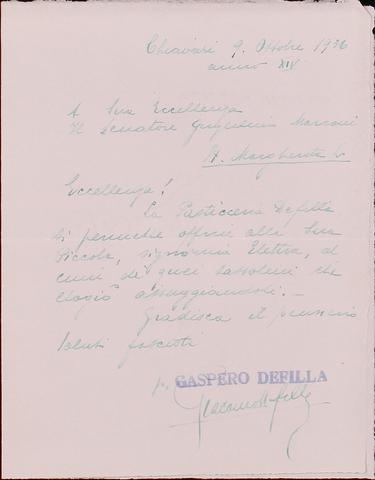 Chiavari 9. Ottobre 1936
anno XIV
A Sua Eccellenza
Il Senatore Guglielmo Marconi
S. Margherita L.
Eccellenza!
La Pasticceria Defilla
si permette offrire alla Sua
Piccola, signorina Elettra, 
di quei sassolini che
elogiò assaggiandoli.—
Gradisca il pensiero
Saluti fascisti
p. GASPERO DEFILLA
Giacomo Defilla